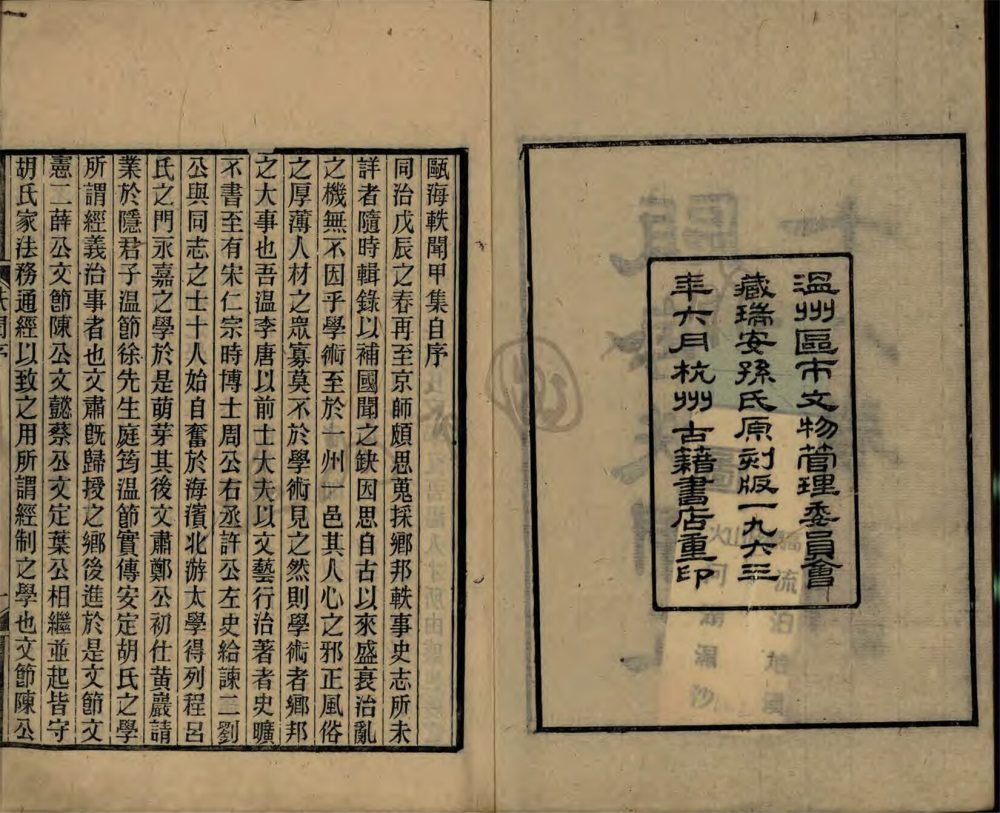 溫州區市文物管理委員會
藏瑞安孫氏原刻版一九六三
年六月杭州古籍書店重印
甌海軼聞甲集自序
同治戊辰之春再至京師頗思蒐採鄉邦軼事史志所未
詳者隨時輯錄以補國聞之缺因思自古以來盛衰治亂
之機無不因乎學術至於一州一邑其人心之邪正風俗
之厚薄人材之眾寡莫不於學術見之然則學術者鄉邦
之大事也吾溫李唐以前士大夫以文藝行治著者史曠
不書至有宋仁宗時博士周公右丞許公左史給諫二劉
公與同志之士十人始自奮於海濱北游太學得列程呂
氏之門永嘉之學於是萌芽其後文肅鄭公初仕黃巖請
業於隱君子溫節徐先生庭筠溫節實傳安定胡氏之學
所謂經義治事者也文肅旣歸授之鄉後進於是文節文
憲二薛公文節陳公文懿蔡公文定葉公相繼並起皆守
胡氏家法務通經以致之用所謂經制之學也文節陳公